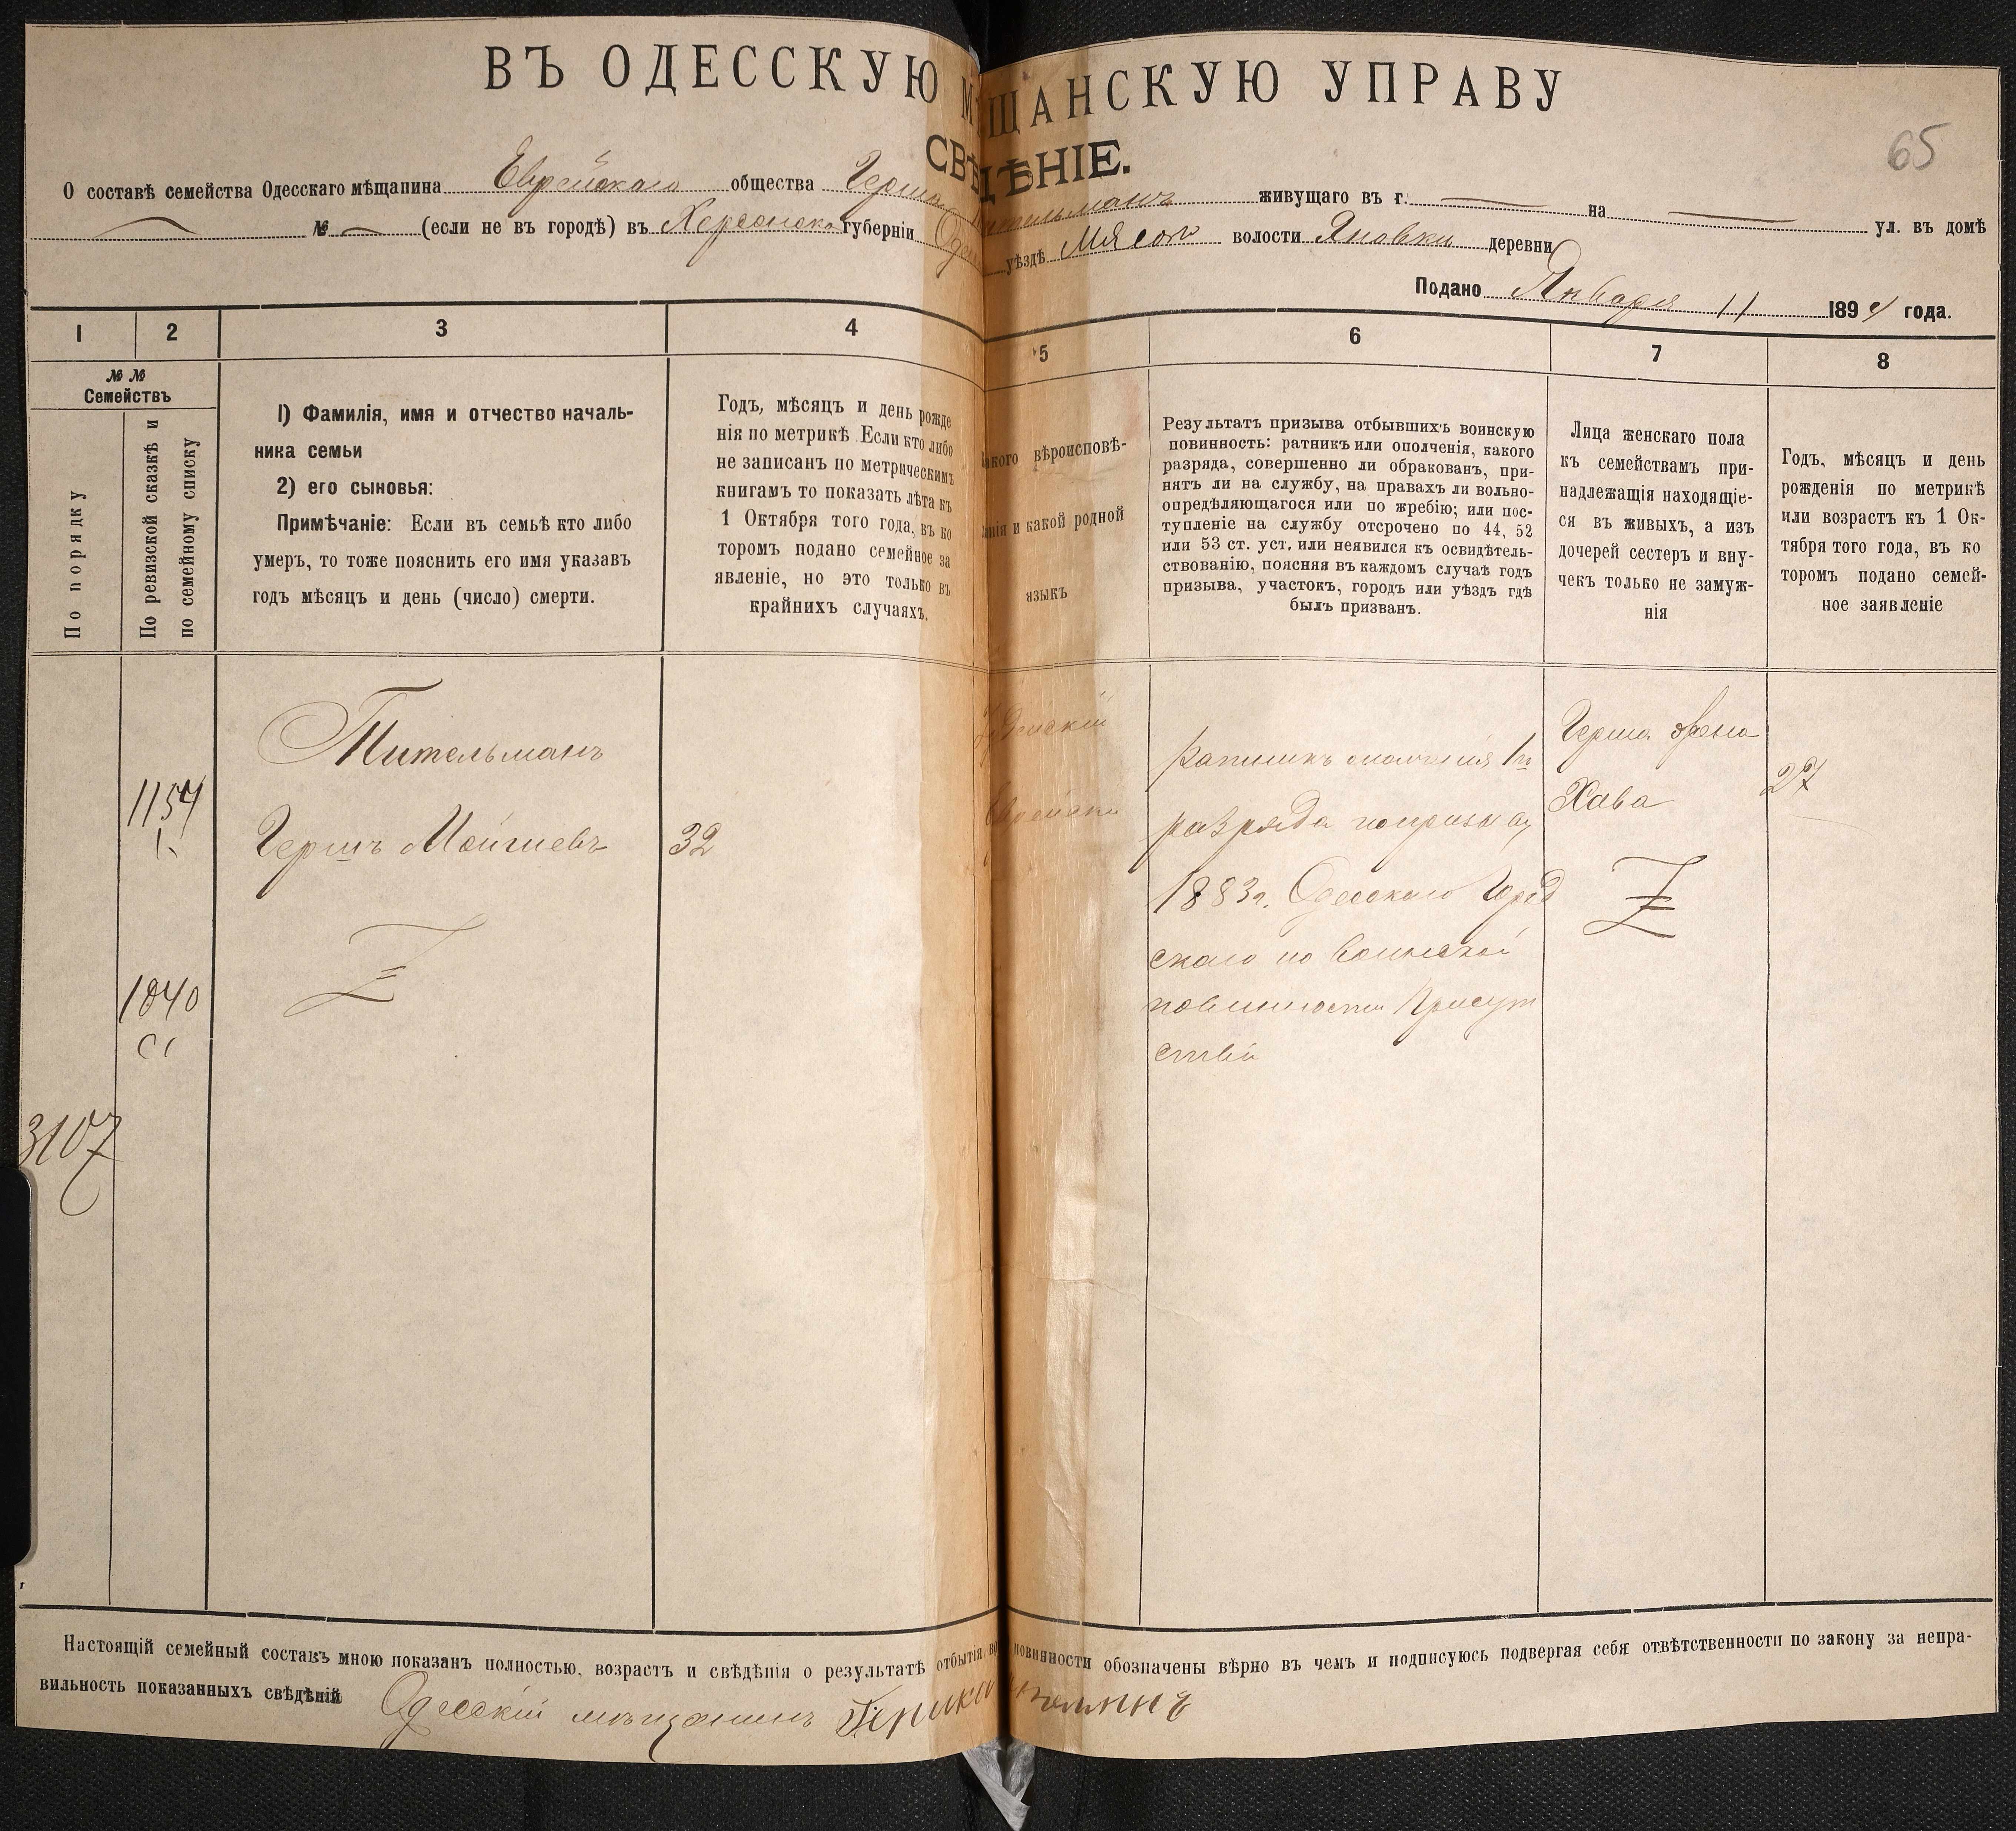 ВЪ ОДЕССКУЮ М ЩАНСКУЮ УПРАВУ
СВѢДѢНІЕ.
65
О составѣ семейства Одесскаго мѣщанина Еврейскаго общества Герша Тительманъ живущаго въ г. на ул. въ домѣ
№ (если не въ городѣ) въ Херсонско губерніи уѣздѣ волости Яновки деревни
Подано Января 11 1894 года.
1 2 3 4 5 6 7 8
№ №
Семействъ
По порядку
По ревизской сказкѣ и
по семейному списку
1) Фамилія, имя и отчество началь-
ника семьи
2) его сыновья:
Примѣчаніе: Если въ семьѣ кто либо
умеръ, то тоже пояснить его имя указавъ
годъ мѣсяцъ и день (число) смерти.
Годъ, мѣсяцъ и день рожде
нія по метрикѣ Если кто либо
не записанъ по метрическимъ
книгамъ то показать лѣта къ
1 Октября того года, въ ко
торомъ подано семейное за
явленіе, но это только въ
крайнихъ случаяхъ.
какого вѣроисповѣ-
анія и какой родной
языкъ
Результатъ призыва отбывшихъ воинскую
повинность: ратникъ или ополченія, какого
разряда, совершенно ли обракованъ, при-
нятъ ли на службу, на правахъ ли вольно-
опредѣляющагося или по жребію; или пос-
тупленіе на службу отсрочено по 44, 52
или 53 ст. уст. или неявился къ освидѣтель-
ствованію, поясняя въ каждомъ случаѣ годъ
призыва, участокъ, городъ или уѣздъ гдѣ
былъ призванъ.
Лица женскаго пола
къ семействамъ при-
надлежащія находящіе-
ся въ живыхъ, а изъ
дочерей сестеръ и вну-
чекъ только не замуж-
нія
Годъ, мѣсяцъ и день
рожденія по метрикѣ
или возрастъ къ 1 Ок-
тября того года, въ ко
торомъ подано семей-
ное заявленіе
1154
1040
3107
Тительманъ
Гершъ Мойшевъ
32
ратникъ ополченія 1го
разряда попризыву
1883г. Одесскаго Город
скаго по воинской
повинности Присут
ствія
Герша жена
Хава
27
Настоящій семейный составъ мною показанъ полностью, возрастъ и свѣдѣнія о результатѣ отбытія во повинности обозначены вѣрно въ чемъ и подписуюсь подвергая себя отвѣтственности по закону за непра-
вильность показанныхъ свѣдѣній Одесскій мѣщанинъ